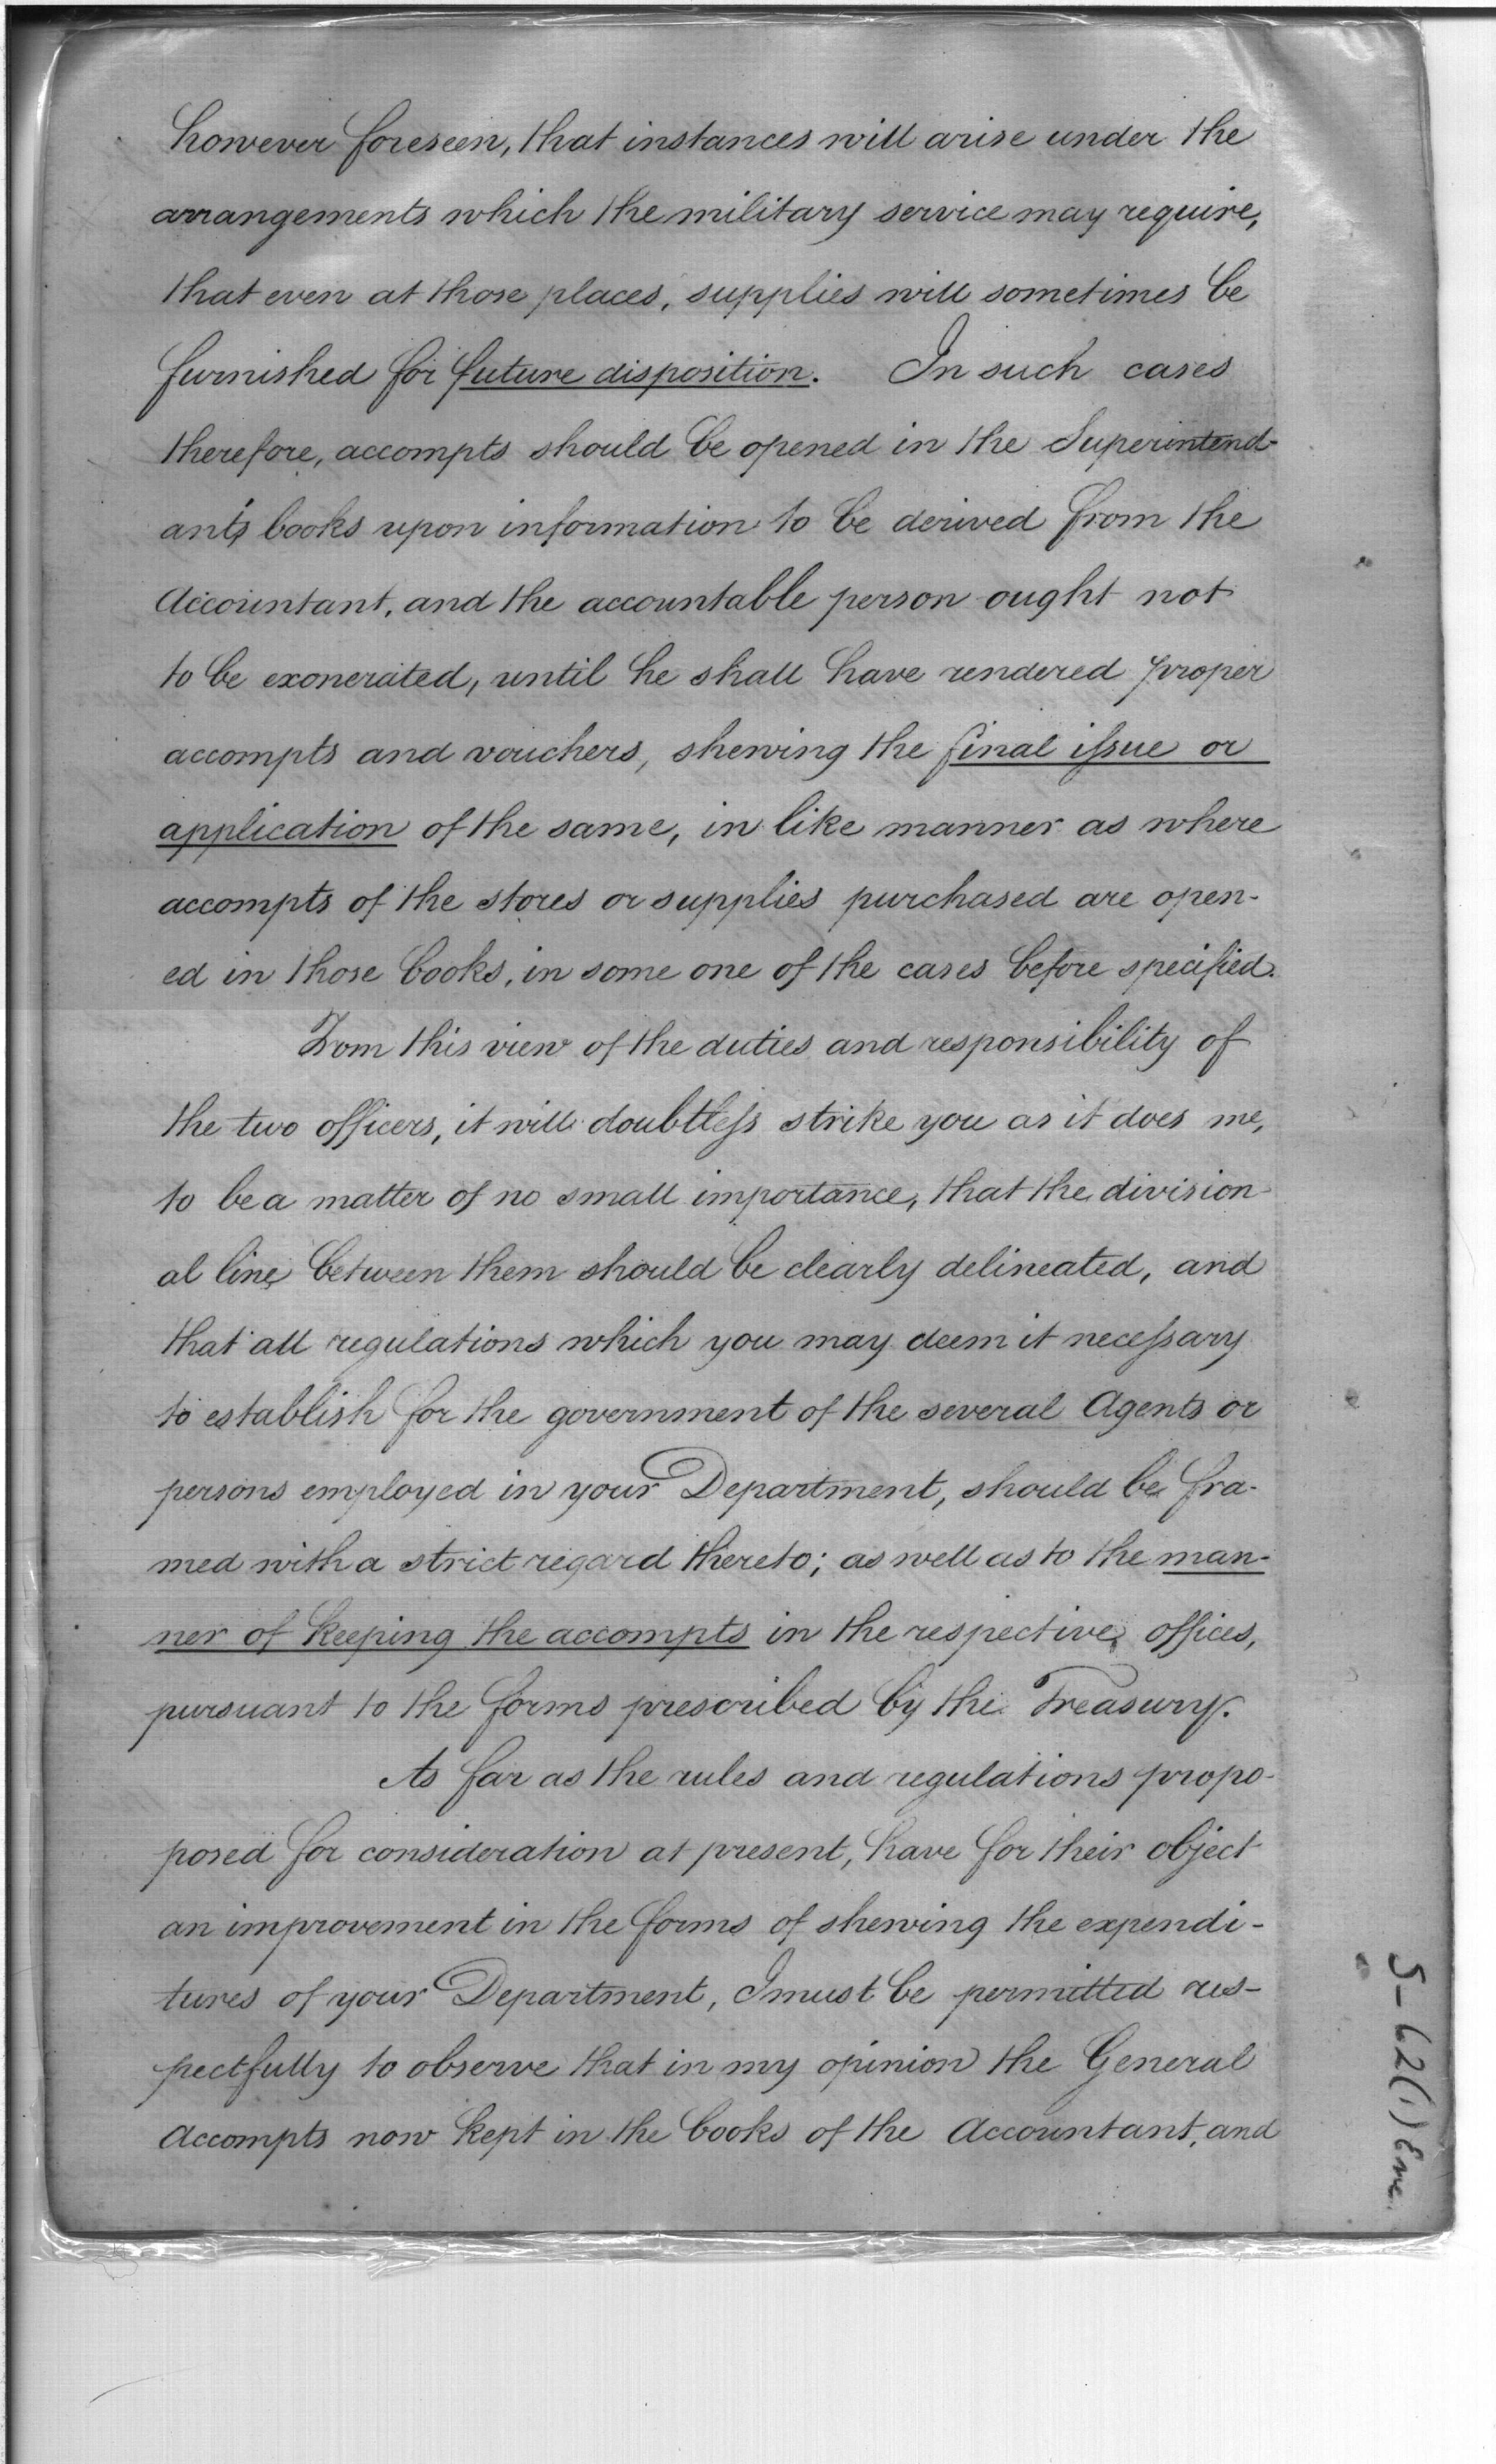 however foreseen, that instances will arise under the
arrangements which the military service may require,
that even at those places, supplies will sometimes be
furnished for future disposition. In such cases
therefore, accompts should be opened in the Superintend-
ant's books upon information to be derived from the
Accountant, and the accountable person ought not
to be exonerated, until he shall have rendered proper
accompts and vouchers, shewing the final issue or
application of the same, in like manner as where
accompts of the stores or supplies purchased are open-
ed in those books, in some one of the cases before specified.
From this view of the duties and responsibility of
the two officers, it will doubtless strike you as it does me,
to be a matter of no small importance, that the division-
al line between them should be clearly delineated, and
that all regulations which you may deem it necessary
to establish for the government of the several Agents or
persons employed in your Department, should be fra-
med with a strict regard thereto; as well as to the man-
ner of keeping the accompts in the respective offices,
pursuant to the forms prescribed by the Treasury.
As far as the rules and regulations propo-
posed for consideration at present, have for their object
an improvement in the forms of shewing the expendi-
tures of your Department, I must be permitted res-
pectfully to observe that in my opinion the General
Accompts now kept in the books of the Accountant, and